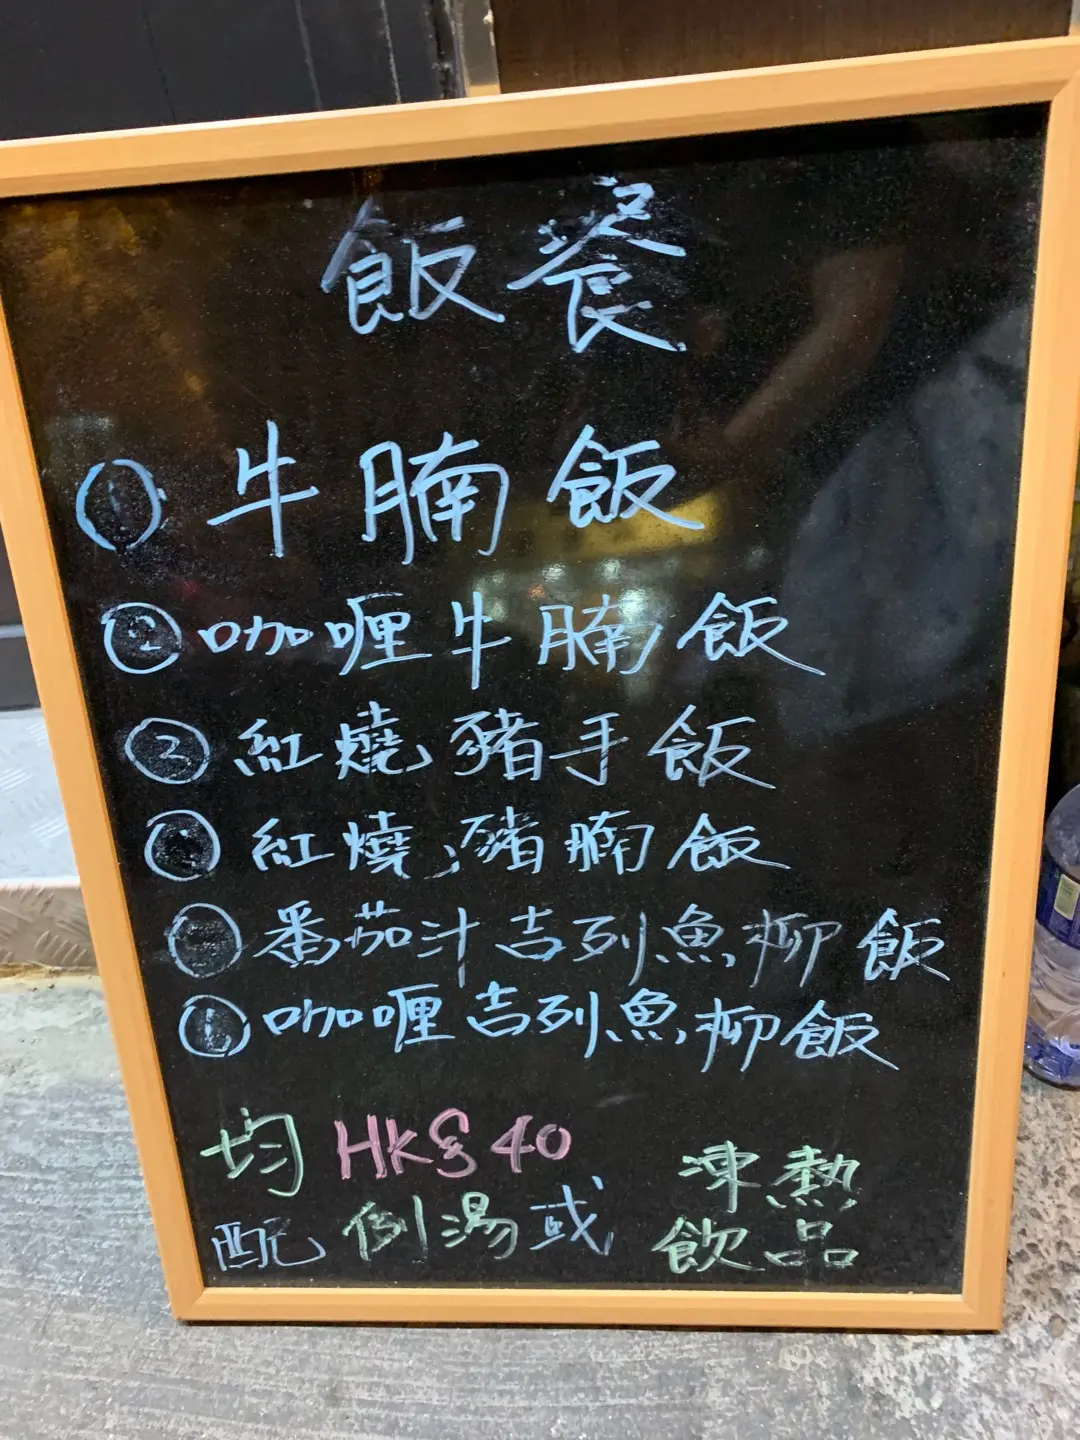 飯餐
① 牛腩飯
② 咖喱牛腩飯
② 紅燒豬手飯
紅燒豬腩飯
番茄汁吉列魚柳飯
① 咖喱吉列魚柳飯
均 HK$40 凍熱
配 例湯 或 飲品